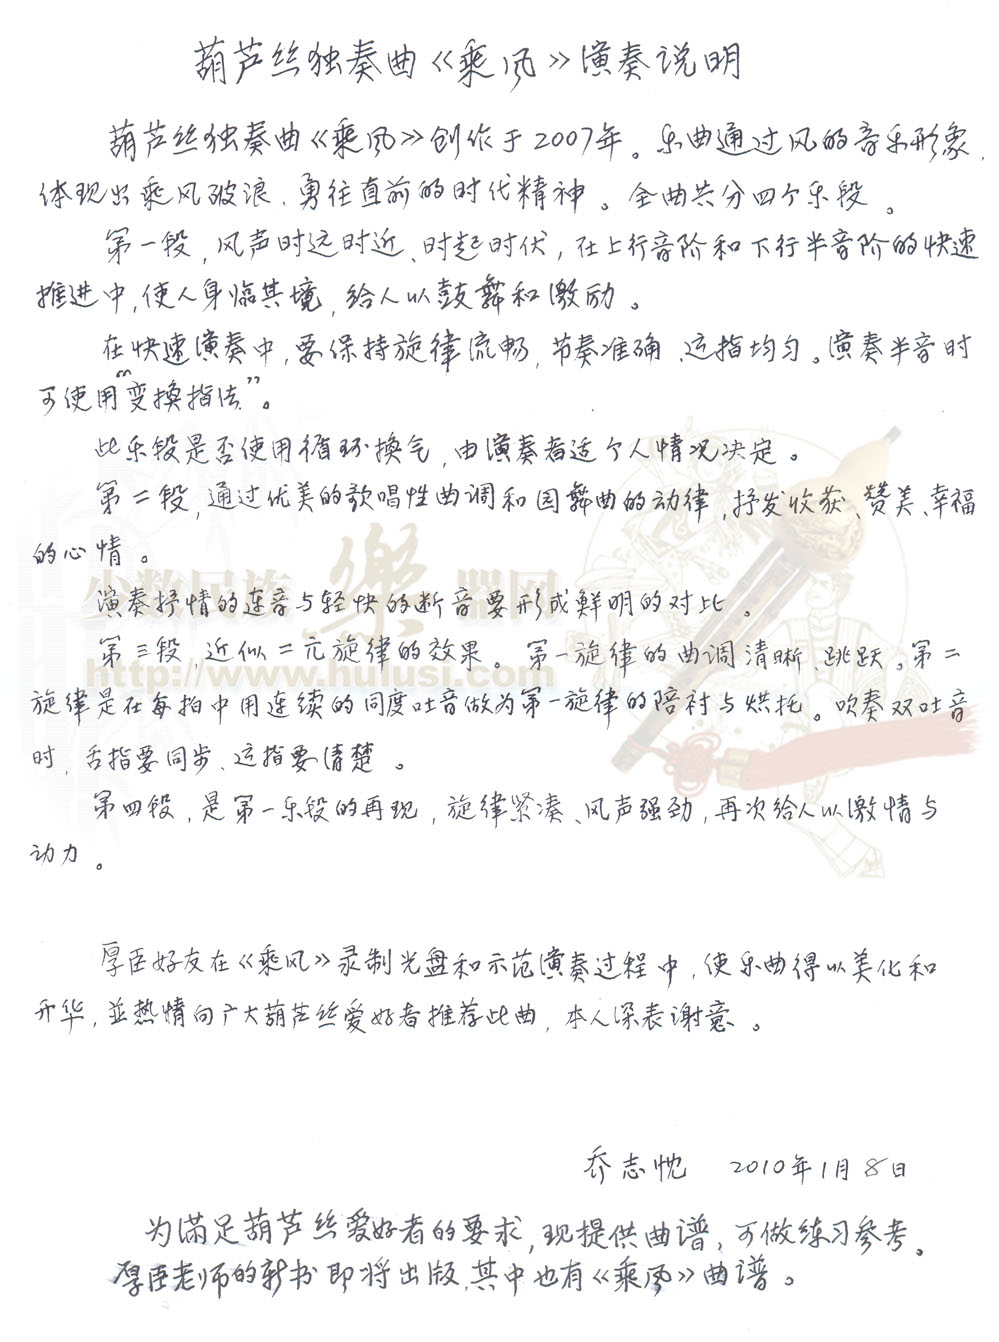 葫芦丝独奏曲《乘风》演奏说明
葫芦丝独奏曲《乘风》创作于2007年。乐曲通过风的音乐形象,
体现出乘风破浪、勇往直前的时代精神。全曲共分四个乐段。
第一段,风声时远时近、时起时伏,在上行音阶和下行半音阶的快速
推进中,使人身临其境,给人以鼓舞和激励。
在快速演奏中,要保持旋律流畅,节奏准确、运指均匀。演奏半音时
可使用“变换指法”。
此乐段是否使用循环换气,由演奏者适个人情况决定。
第二段,通过优美的歌唱性曲调和园舞曲的动律,抒发收获、赞美、幸福
的心情。
演奏抒情的连音与轻快的断音要形成鲜明的对比。
第三段,近似二元旋律的效果。第一旋律的曲调清晰、跳跃。第二
旋律是在每拍中用连续的同度吐音做为第一旋律的陪衬与烘托。吹奏双吐音
时,舌指要同步、运指要清楚。
第四段,是第一乐段的再现,旋律紧凑、风声强劲,再次给人以激情与
动力。
厚臣好友在《乘风》录制光盘和示范演奏过程中,使乐曲得以美化和
升华,並热情向广大葫芦丝爱好者推荐此曲,本人深表谢意。
乔志忱 2010年1月8日
为满足葫芦丝爱好者的要求,现提供曲谱,可做练习参考。
厚臣老师的新书即将出版,其中也有《乘风》曲谱。
少数民族樂器网
http://www.hulusi.com